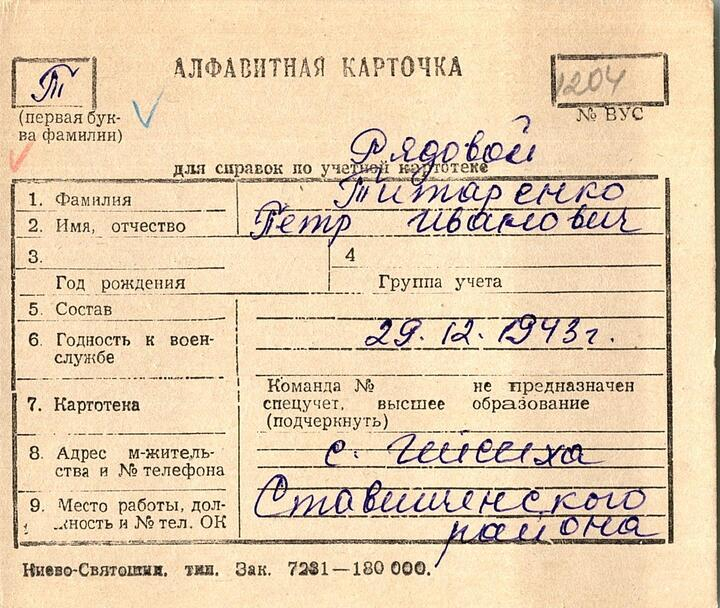 АЛФАВИТНАЯ КАРТОЧКА
Т
1204
(первая бук-
ва фамилии)
№ ВУС
Рядовой
для справок по учетной картотеке
1. Фамилия Титаренко
2. Имя, отчество Петр Иванович
3. 4
Год рождения Группа учета
5. Состав
6. Годность к воен-
службе
29.12.1943г.
7. Картотека
Команда № не предназначен
спецучет, высшее образование
(подчеркнуть)
8. Адрес м-житель-
ства и № телефона
с.
9. Место работы, дол-
жность и № тел. ОК
Ставищенского
района
Киево-Святошин. тип. Зак. 7231—180 000.